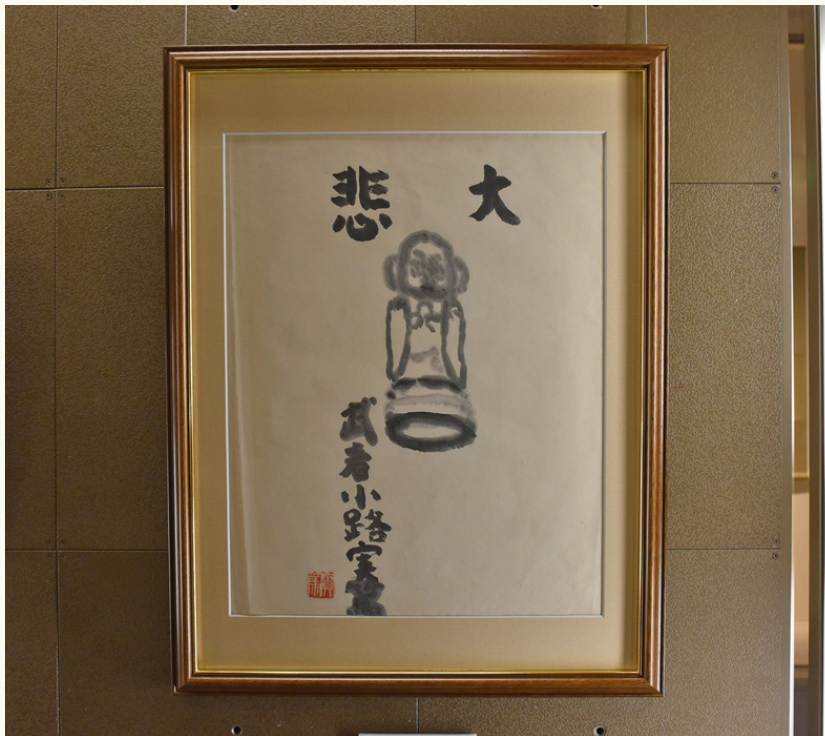 大悲
武者小路実篤